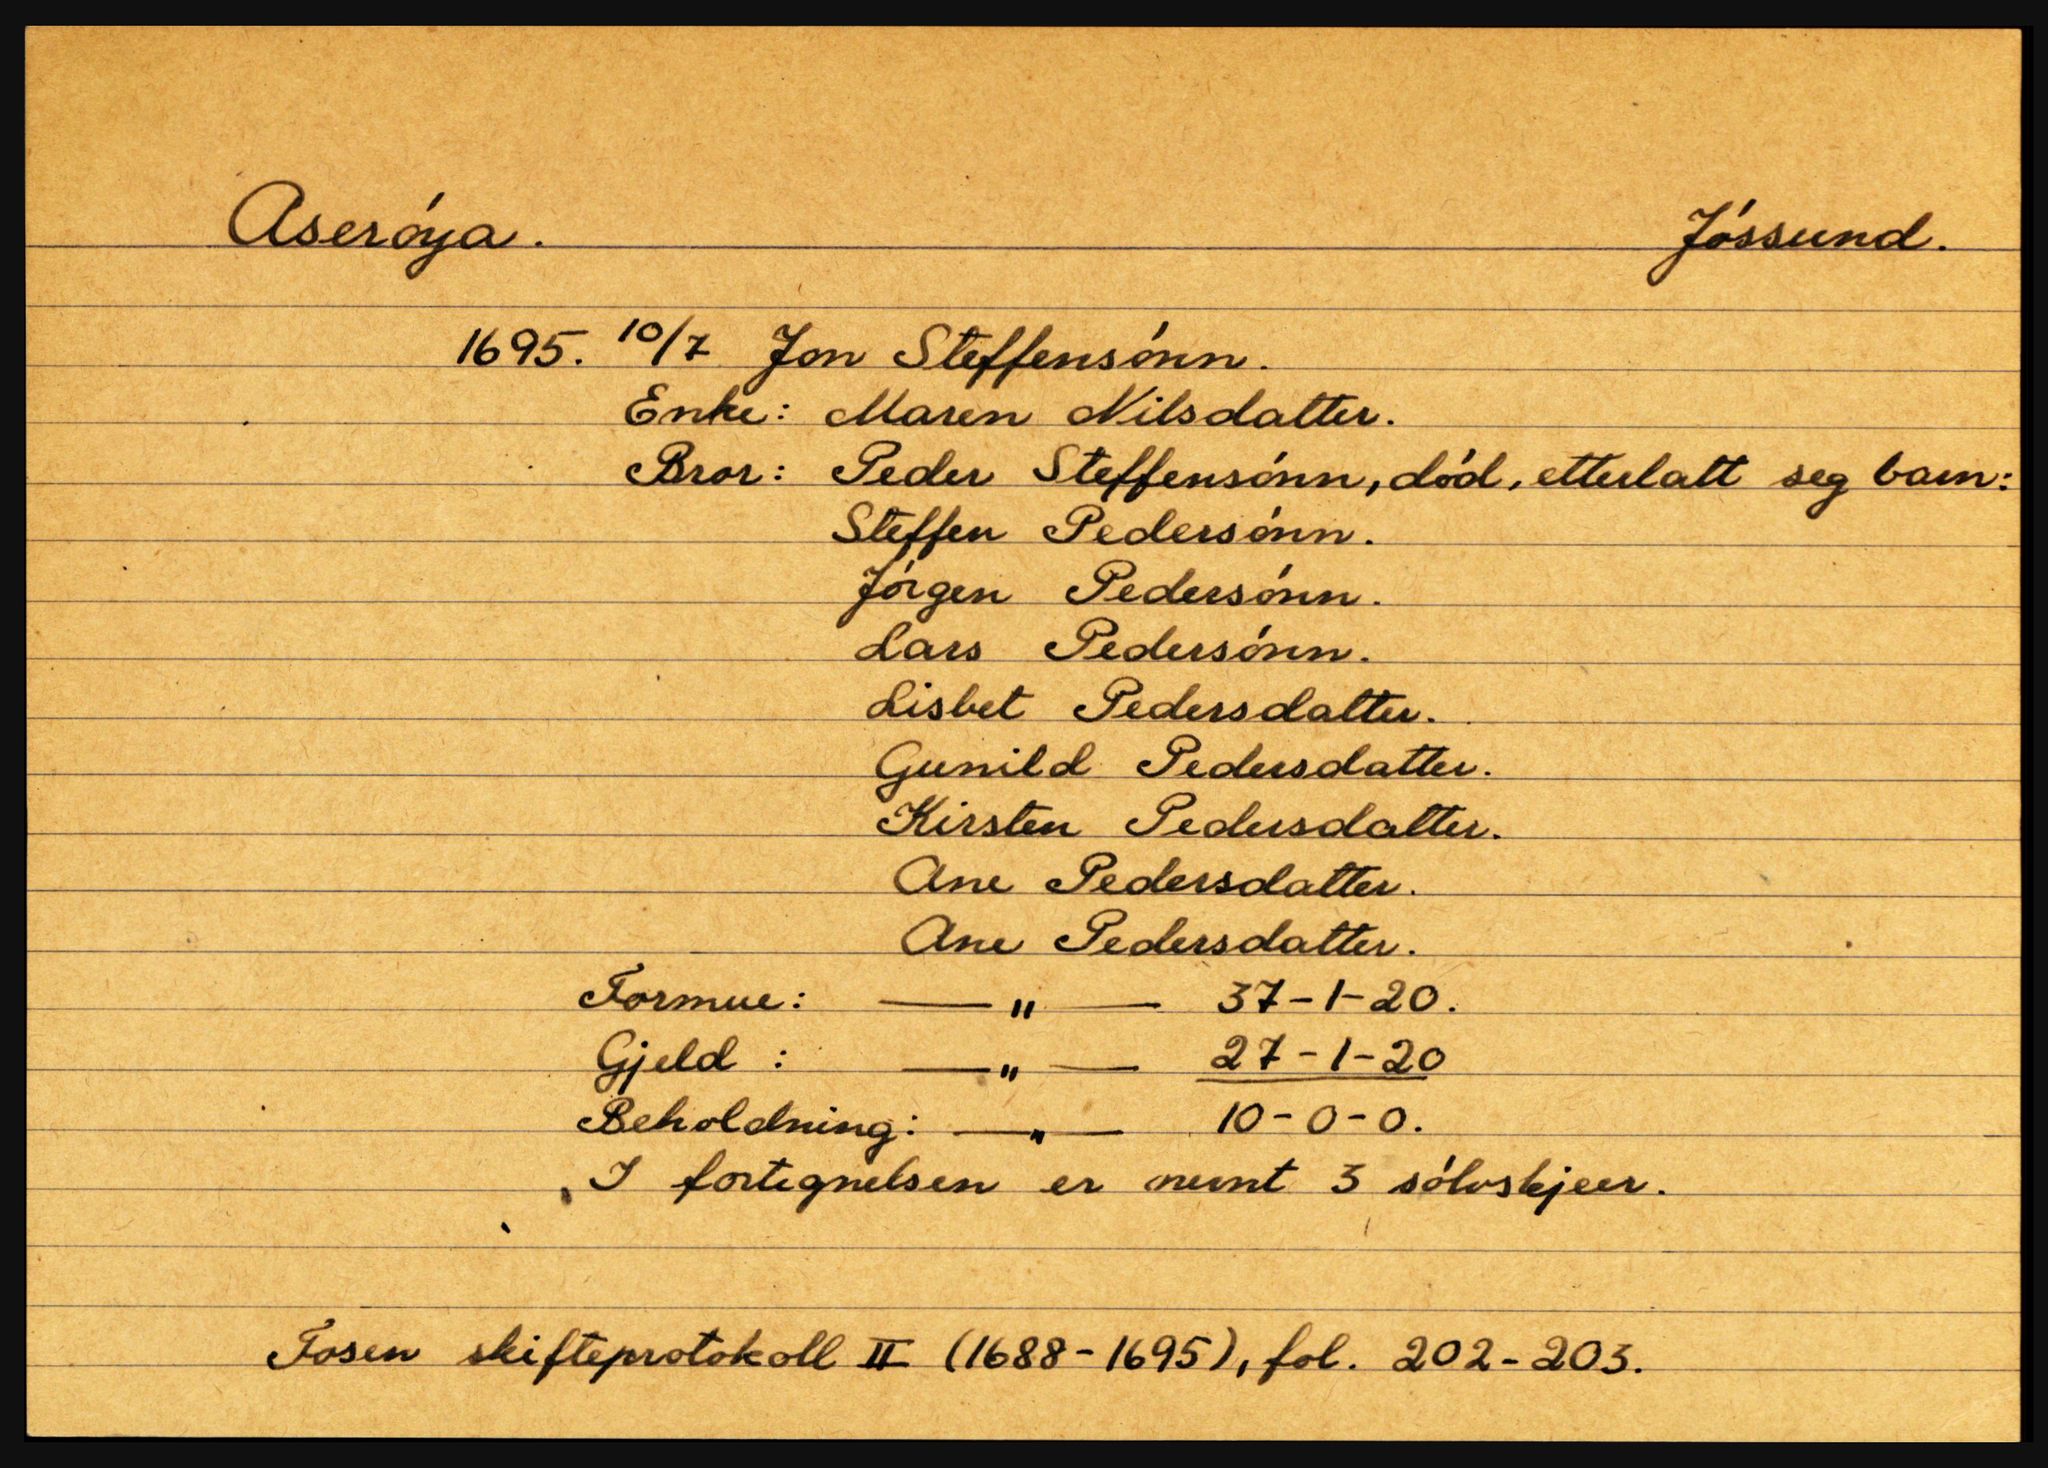 Aseróya. Jóssund.
1695. 10/7 Jon Steffensónn.
Enke: Maren Nilsdatter.
Bror: Peder Steffensónn, dód, etterlatt seg barn:
Steffen Pedersónn.
Jórgen Pedersónn.
Lars Pedersónn.
Lisbet Pedersdatter.
Gunild Pedersdatter.
Kirsten Pedersdatter.
Ane Pedersdatter.
Ane Pedersdatter.
Formue: — " — 37-1-20.
Gjeld : — " — 27-1-20
Beholdning: — " — 10-0-0.
I fortegnelsen er nevnt 3 sólvskjeer.
Fosen skifteprotokoll II (1688-1695), fol. 202-203.